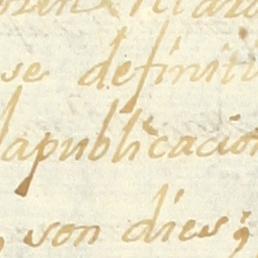 se definiti
lapublicacion
son dies;